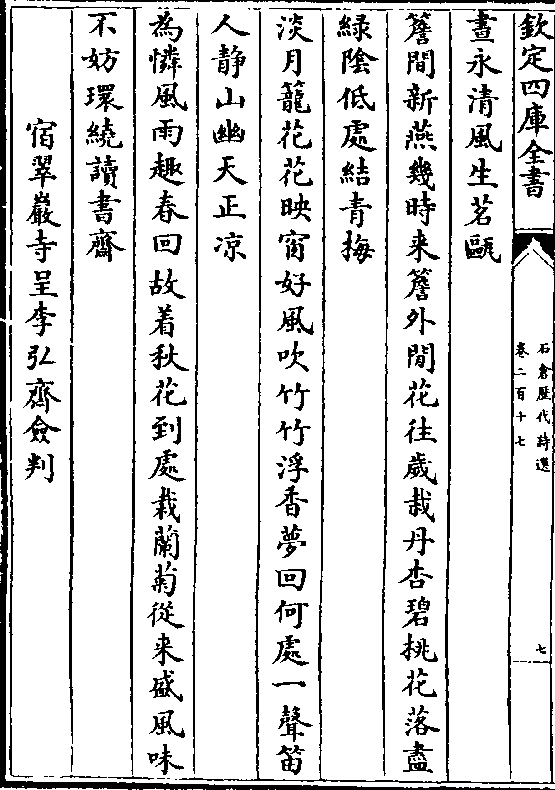 欽定四庫全書
石倉歷代詩選
卷二百十七
七
晝永清風生茗甌
簷間新燕幾時来簷外閒花往歲栽丹杏碧桃花落盡
緑陰低處結青梅
淡月籠花花映窗好風吹竹竹浮香夢回何處一聲笛
人静山幽天正凉
為憐風雨趣春回故着秋花到處栽蘭菊從来盛風味
不妨環繞讀書齋
宿翠巖寺呈李弘齋僉判